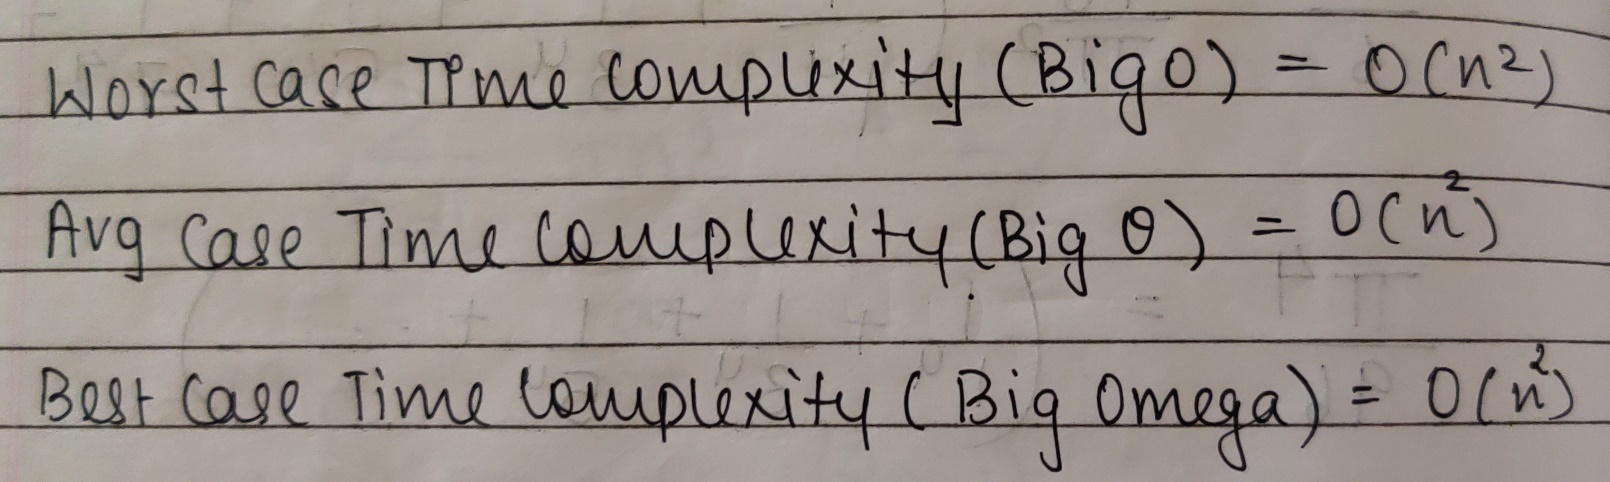 Worst case Time complexity (Big O) = O(n²)
Avg Case Time Complexity (Big θ) = O(n²)
Best Case Time Complexity (Big Omega) = O(n²)